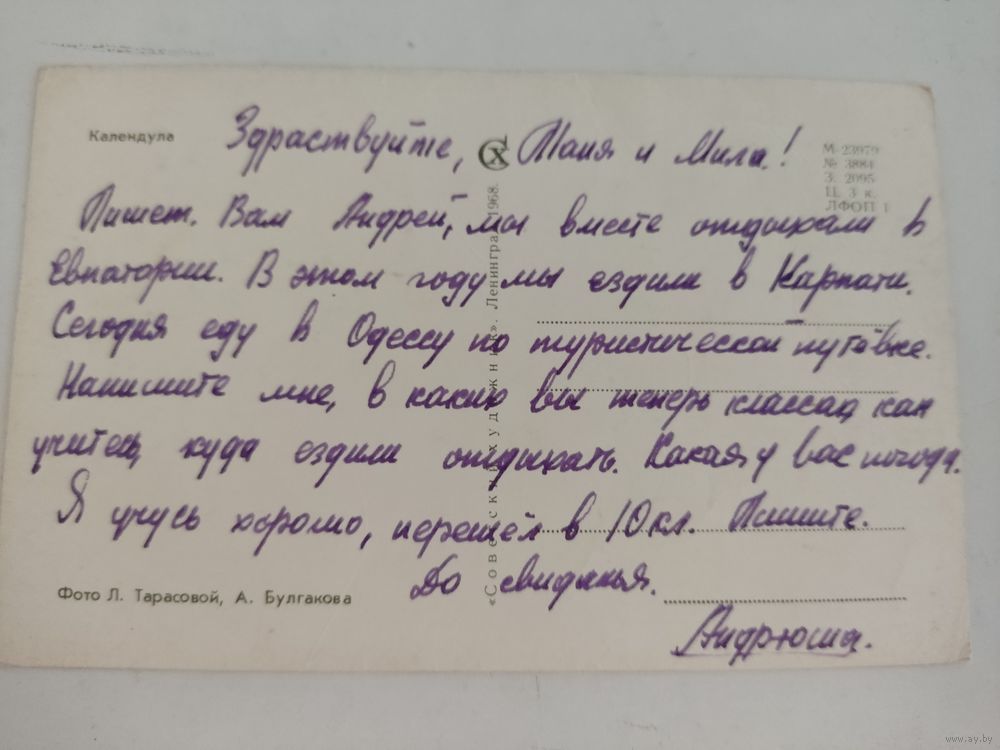 Календула
Здраствуйте, Таня и Мила!
М-23979
№ 3884
З. 2095
Ц. 3 к.
ЛФОП 1
Пишет Вам Андрей, мы вместе отдыхали в
Евпатории. В этом году мы ездили в Карпати.
Сегодня еду в Одессу по туристической путёвке.
Напишите мне, в каких вы теперь классах, как
учитесь, куда ездили отдыхать. Какая у вас погода.
Я учусь хорошо, перешёл в 10 кл. Пишите.
До свиданья.
Андрюша.
Фото Л. Тарасовой, А. Булгакова
«Советский художник». Ленинград. 1968.
www.ay.by